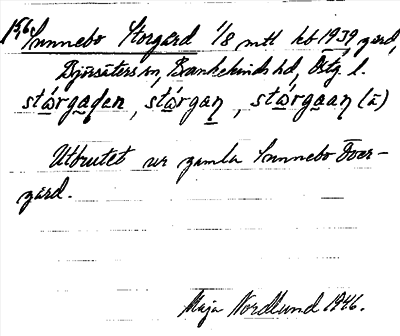 Sunnebo Storgård 1/8 mtl kb 1939 gård,
Björsäters sn, Bankekinds hd, Östg. l.
stǻrgaden, stǻrgan, stǻrgaan (ä)
Utbrutet ur gamla Sunnebo Över-
gård.
Maja Nordlund 1946.